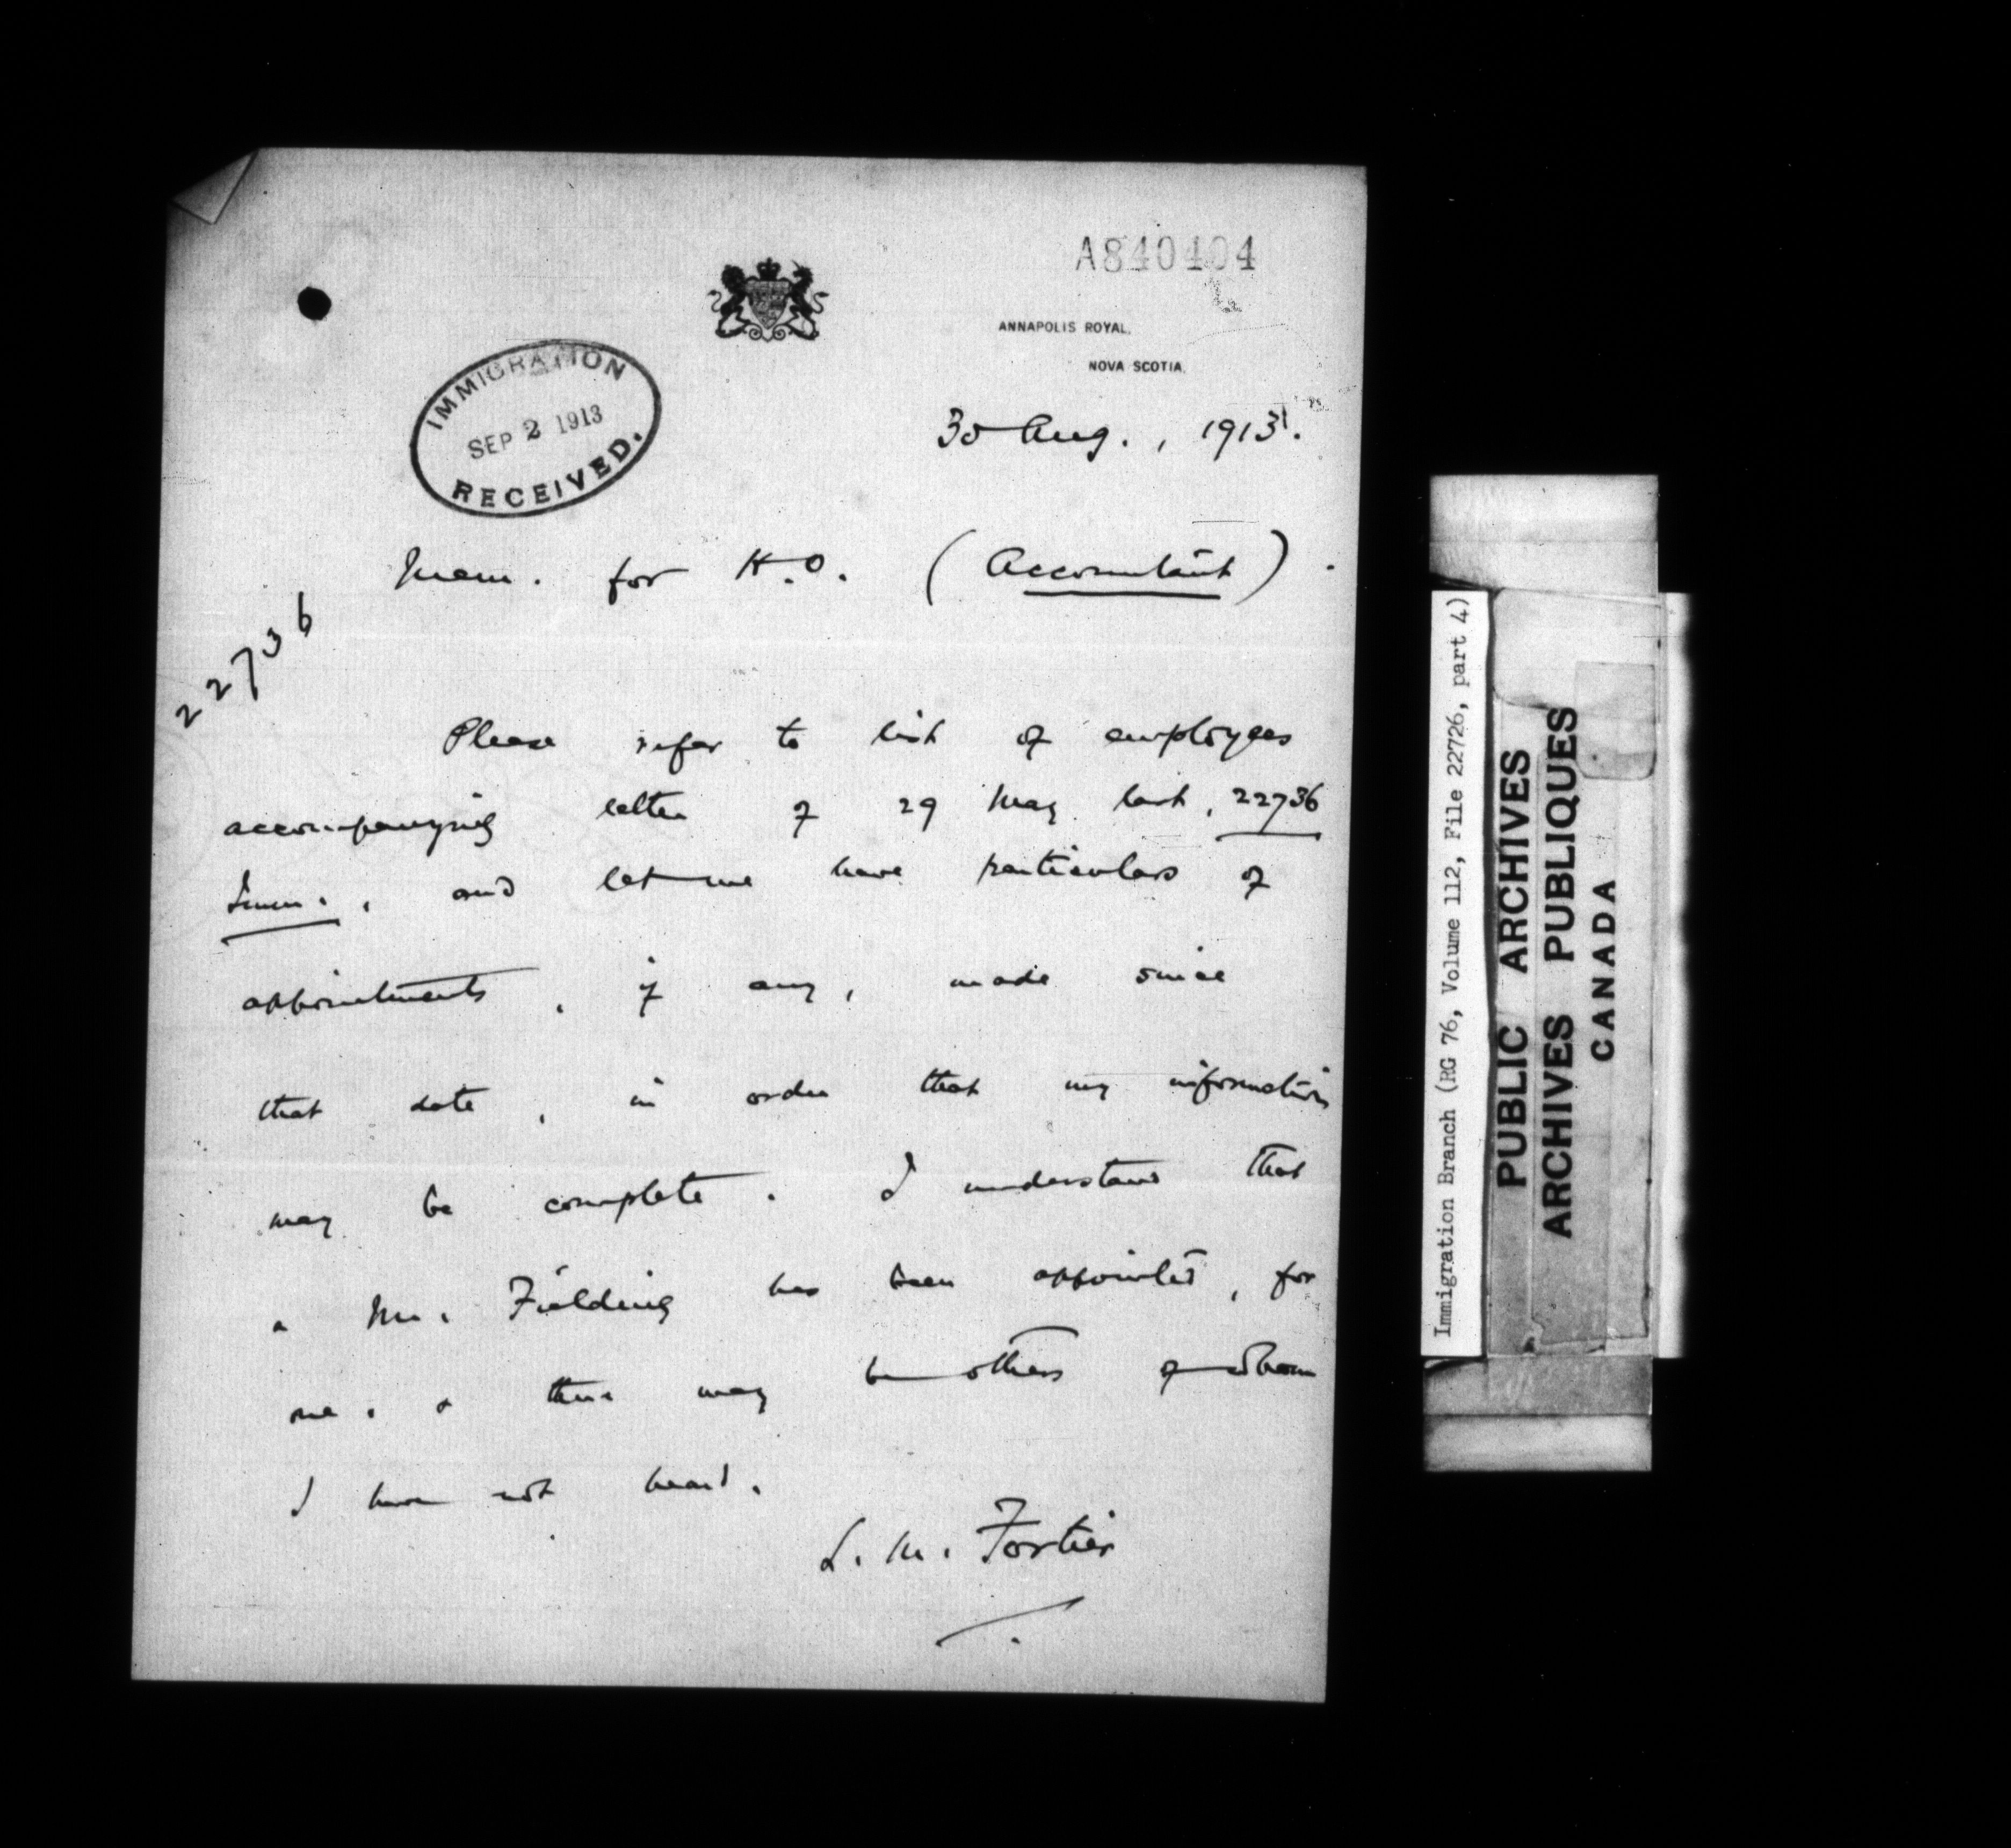 A840404
ANNAPOLIS ROYAL,
NOVA SCOTIA.
IMMIGRATION
SEP 2 1913
RECEIVED.
30 Aug., 1913.
Mem. for H.O. (Accountant).
22736
Please refer to list of employees
accompanying letter of 29 May last, 22736
Imm., and let me have particulars of
appointments, if any, made since
that date, in order that my information
may be complete. I understand that
a Mr. Fielding has been appointed, for
one, & there may be others of whom
I have not heard.
L. M. Fortier
Immigration Branch (RG 76, Volume 112, File 22726, part 4)
PUBLIC ARCHIVES
ARCHIVES PUBLIQUES
CANADA